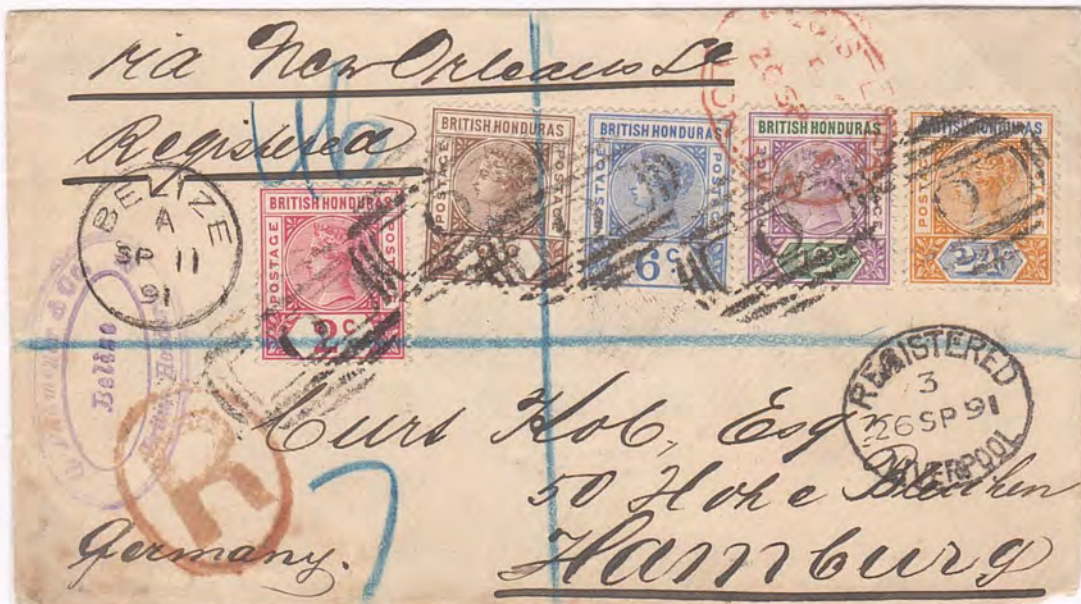 via New Orleans La
Registered
46
BELIZE
A
SP 11
91
BRITISH HONDURAS
POSTAGE
POSTAGE
2c
BRITISH HONDURAS
POSTAGE
POSTAGE
BRITISH HONDURAS
POSTAGE
POSTAGE
6c
BRITISH HONDURAS
POSTAGE
POSTAGE
BRITISH HONDURAS
POSTAGE
24c
& Co
Belize
REGISTERED
3
26 SP 91
LIVERPOOL
R
Curt Kob, Esqr
50 Hohe Bleichen
Hamburg
Germany.
7